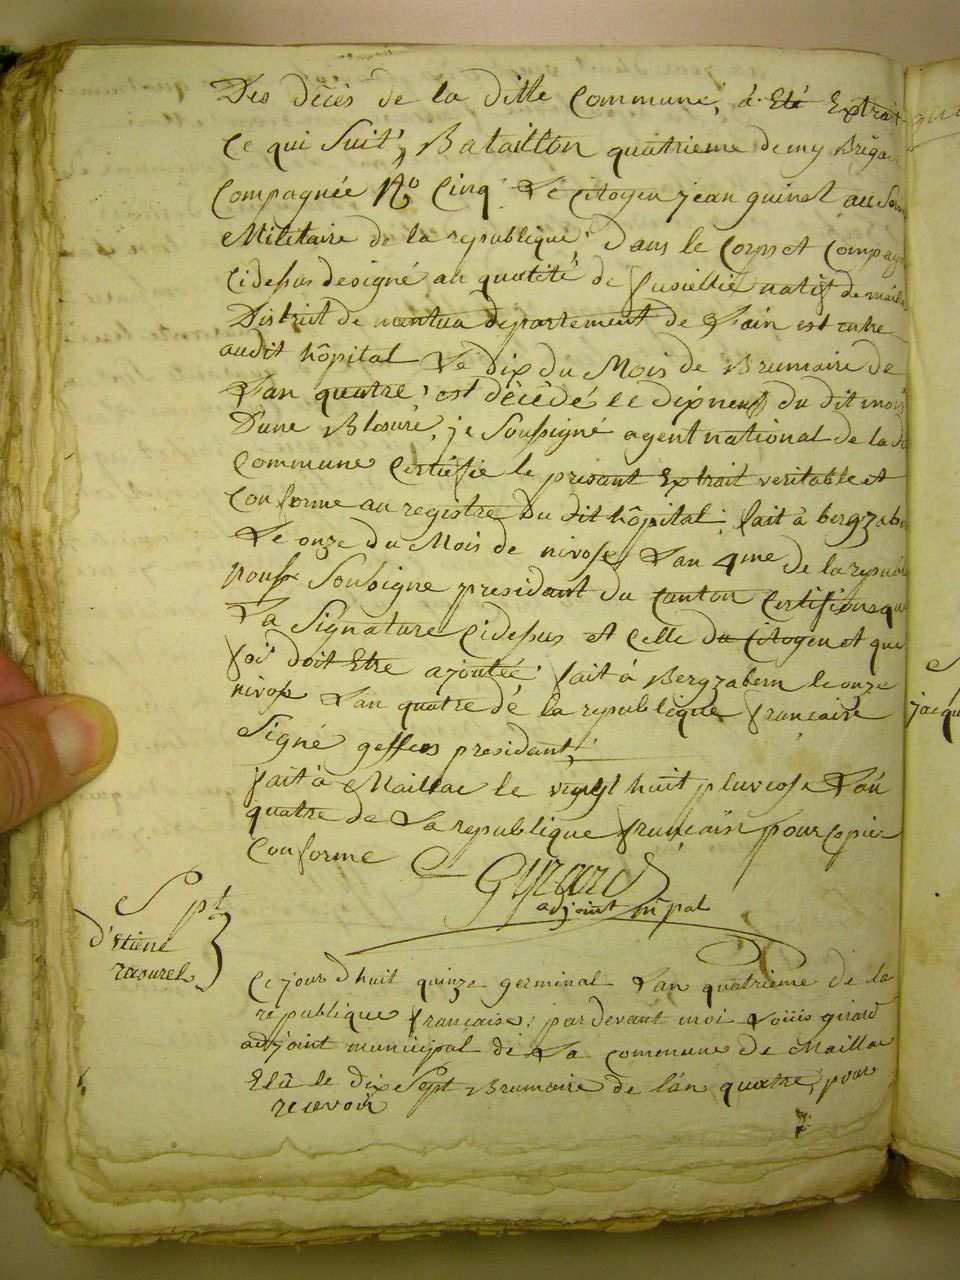 Des décès de la ditte Commune, á Eté Extrait
Ce qui Suit, Bataillon quatrieme demy Brigad
Compagnée No Cinq. Le Citoyen jean guinet au Ser
Militaire de la republique Dans le Corps et Compag
Cidesus designé au quatité de fusiellié natif de mailla
District de nantua departement de L'ain est entre
audit hôpital Le dix du Mois de Brumaire de
L'an quatre, est décédé le dixneuf du dit mois
D'une Blesuré, je Sousigné agent national de la d
Commune Certifie le presant Extrait veritable et
Conforme au registre Du dit hôpital: fait à bergzabe
Le onze du Mois de nivose L'an 4me de la repub
nous Sousigne president du Canton Certifions que
La Signature Cidesus et Celle du Citoyen et que
foi doit Etre ajoutée: fait à Bergzabern le onze
nivose L'an quatre dé la republique francaise
Signé president
fait à Maillac le vingt huit pluviose L'an
quatre de La republique française pour copie
Conforme
Girard
adjoint m'pal
Spt
d'Etiene
rasurel
Ce jour d'huit quinze germinal L'an quatrieme de la
republique française: par devant moi Loüis girard
adjoint municipal de La commune de Maillac
Elû le dix Sept Brumaire de l'an quatre, pour
recevoir
jacqu